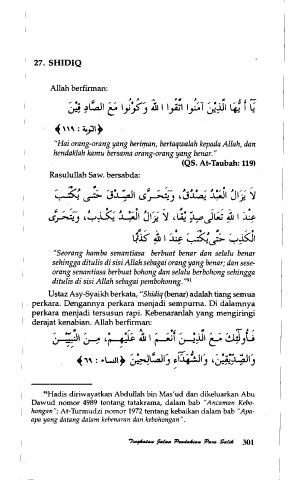 27. SHIDIQ
Allah berfirman:
يَآ أَ يُّهَا الَّذِيْنَ آمَنُوا اتَّقُوا ا للهَ وَ كُوْنُوا مَعَ الصَّادِ قِيْنَ
﴿ التوبة : ١١٩ ﴾
"Hai orang-orang yang beriman, bertaqwalah kepada Allah, dan
hendaklah kamu bersama orang-orang yang benar."
(QS. At-Taubah: 119)
Rasulullah Saw. bersabda:
لاَ يَزَالُ الْعَبْدُ يَصْدُقُ، وَيَتَحَـرَّى الصِّـدْقَ حَتَّـى يُكْتَـبَ
عِنْدَ ا للهِ تَعَالَى صِدِّ يْقًا، لاَ يَزَالُ الْعَبْـدُ يَكْـذِبُ، وَيَتَحَرَّى
الْكَذِبَ حَتَّى يُكْتَبَ عِنْدَ ا للهِ كَذَّابًا
"Seorang hamba senantiasa berbuat benar dan selalu benar
sehingga ditulis di sisi Allah sebagai orang yang benar; dan seo-
orang senantiasa berbuat bohong dan selalu berbohong sehingga
ditulis di sisi Allah sebagai pembohong."⁹¹
Ustaz Asy-Syaikh berkata, "Shidiq (benar) adalah tiang semua
perkara. Dengannya perkara menjadi sempurna. Di dalamnya
perkara menjadi tersusun rapi. Kebenaranlah yang mengiringi
derajat kenabian. Allah berfirman:
فَـأُولَئِكَ مَـعَ الَّذِيْـنَ أَنْعَـمَ ا للهُ عَلَيْهِـمْ، مِـنَ النَّبِيِّـيْنَ
وَالصِّدِّيْقِيْنَ، وَالشُّهَدَآءِ وَالصَّالِحِيْنَ ﴿ النساء : ٦٦ ﴾
⁹¹Hadis diriwayatkan Abdullah bin Mas'ud dan dikeluarkan Abu
Dawud nomor 4989 tentang tatakrama, dalam bab "Ancaman Kebo-
hongan"; At-Turmudzi nomor 1972 tentang kebaikan dalam bab "Apa-
apa yang datang dalam kebenaran dan kebohongan".
Tingkatan Jalan Pendakian Para Salik 301